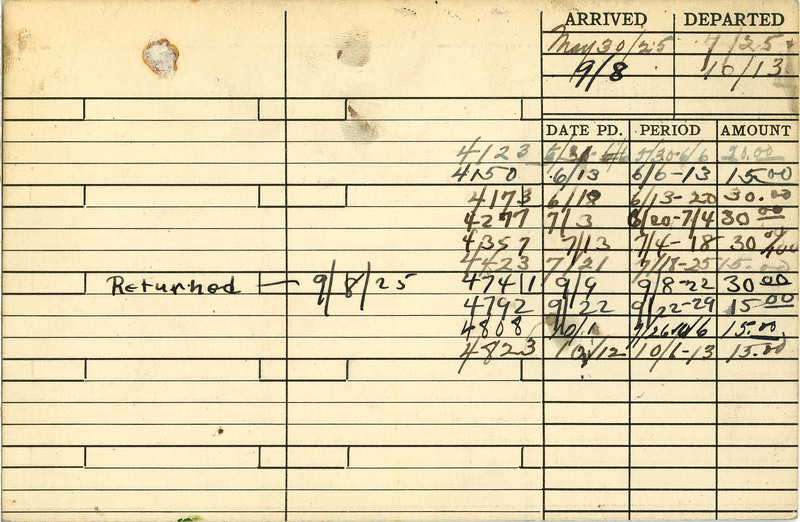 ARRIVED DEPARTED
May 30/25 7/25
9/8 10/13
DATE PD. PERIOD AMOUNT
4123 5/31 5/30-6/6 20.00
4150 6/13 6/6-13 15.00
4173 6/18 6/13-20 30.00
4277 7/3 6/20-7/4 30 00
4357 7/13 7/4-18 30 00
4423 7/21 7/18-25 15.00
Returned — 9/8/25 4741 9/9 9/8-22 30 00
4792 9/22 9/22-29 15.00
4808 10/1 15.00
4823 10/12 10/6-13 15.00